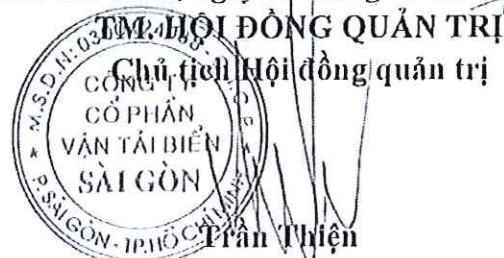 TM. HỘI ĐỒNG QUẢN TRỊ
Chủ tịch Hội đồng quản trị
CÔNG TY
CỔ PHẦN
VẬN TẢI BIỂN
SÀI GÒN
P. SÀI GÒN - TP. HỒ CHÍ MINH
Trần Thiện